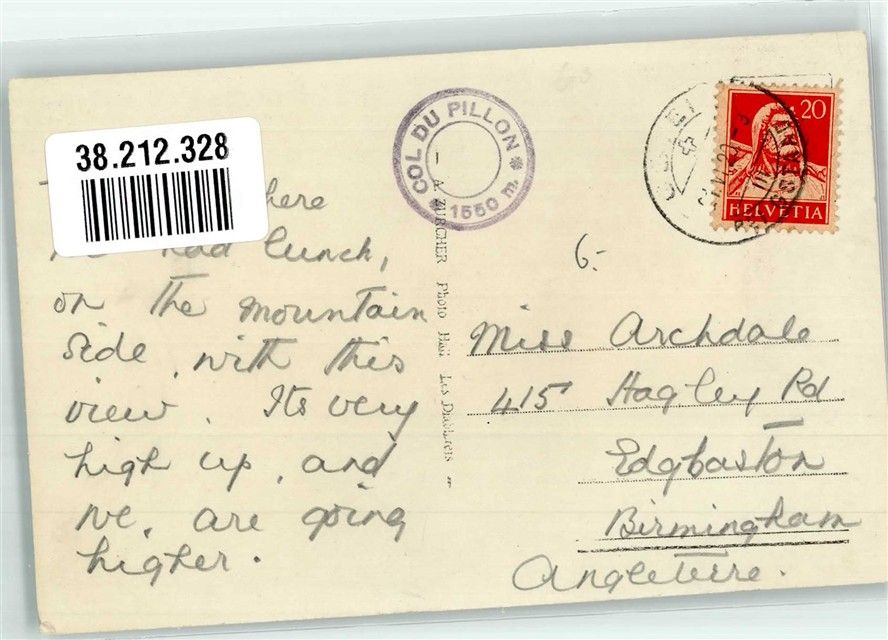 38.212.328
COL DU PILLON
* 1550 m. *
20
HELVETIA
here
had lunch,
on the mountain
side, with this
view. Its very
high up, and
we, are going
higher.
— A. ZURCHER Photo Les Diablerets —
6.-
Miss Archdale
415 Hagley Rd
Edgbaston
Birmingham
Angleterre.